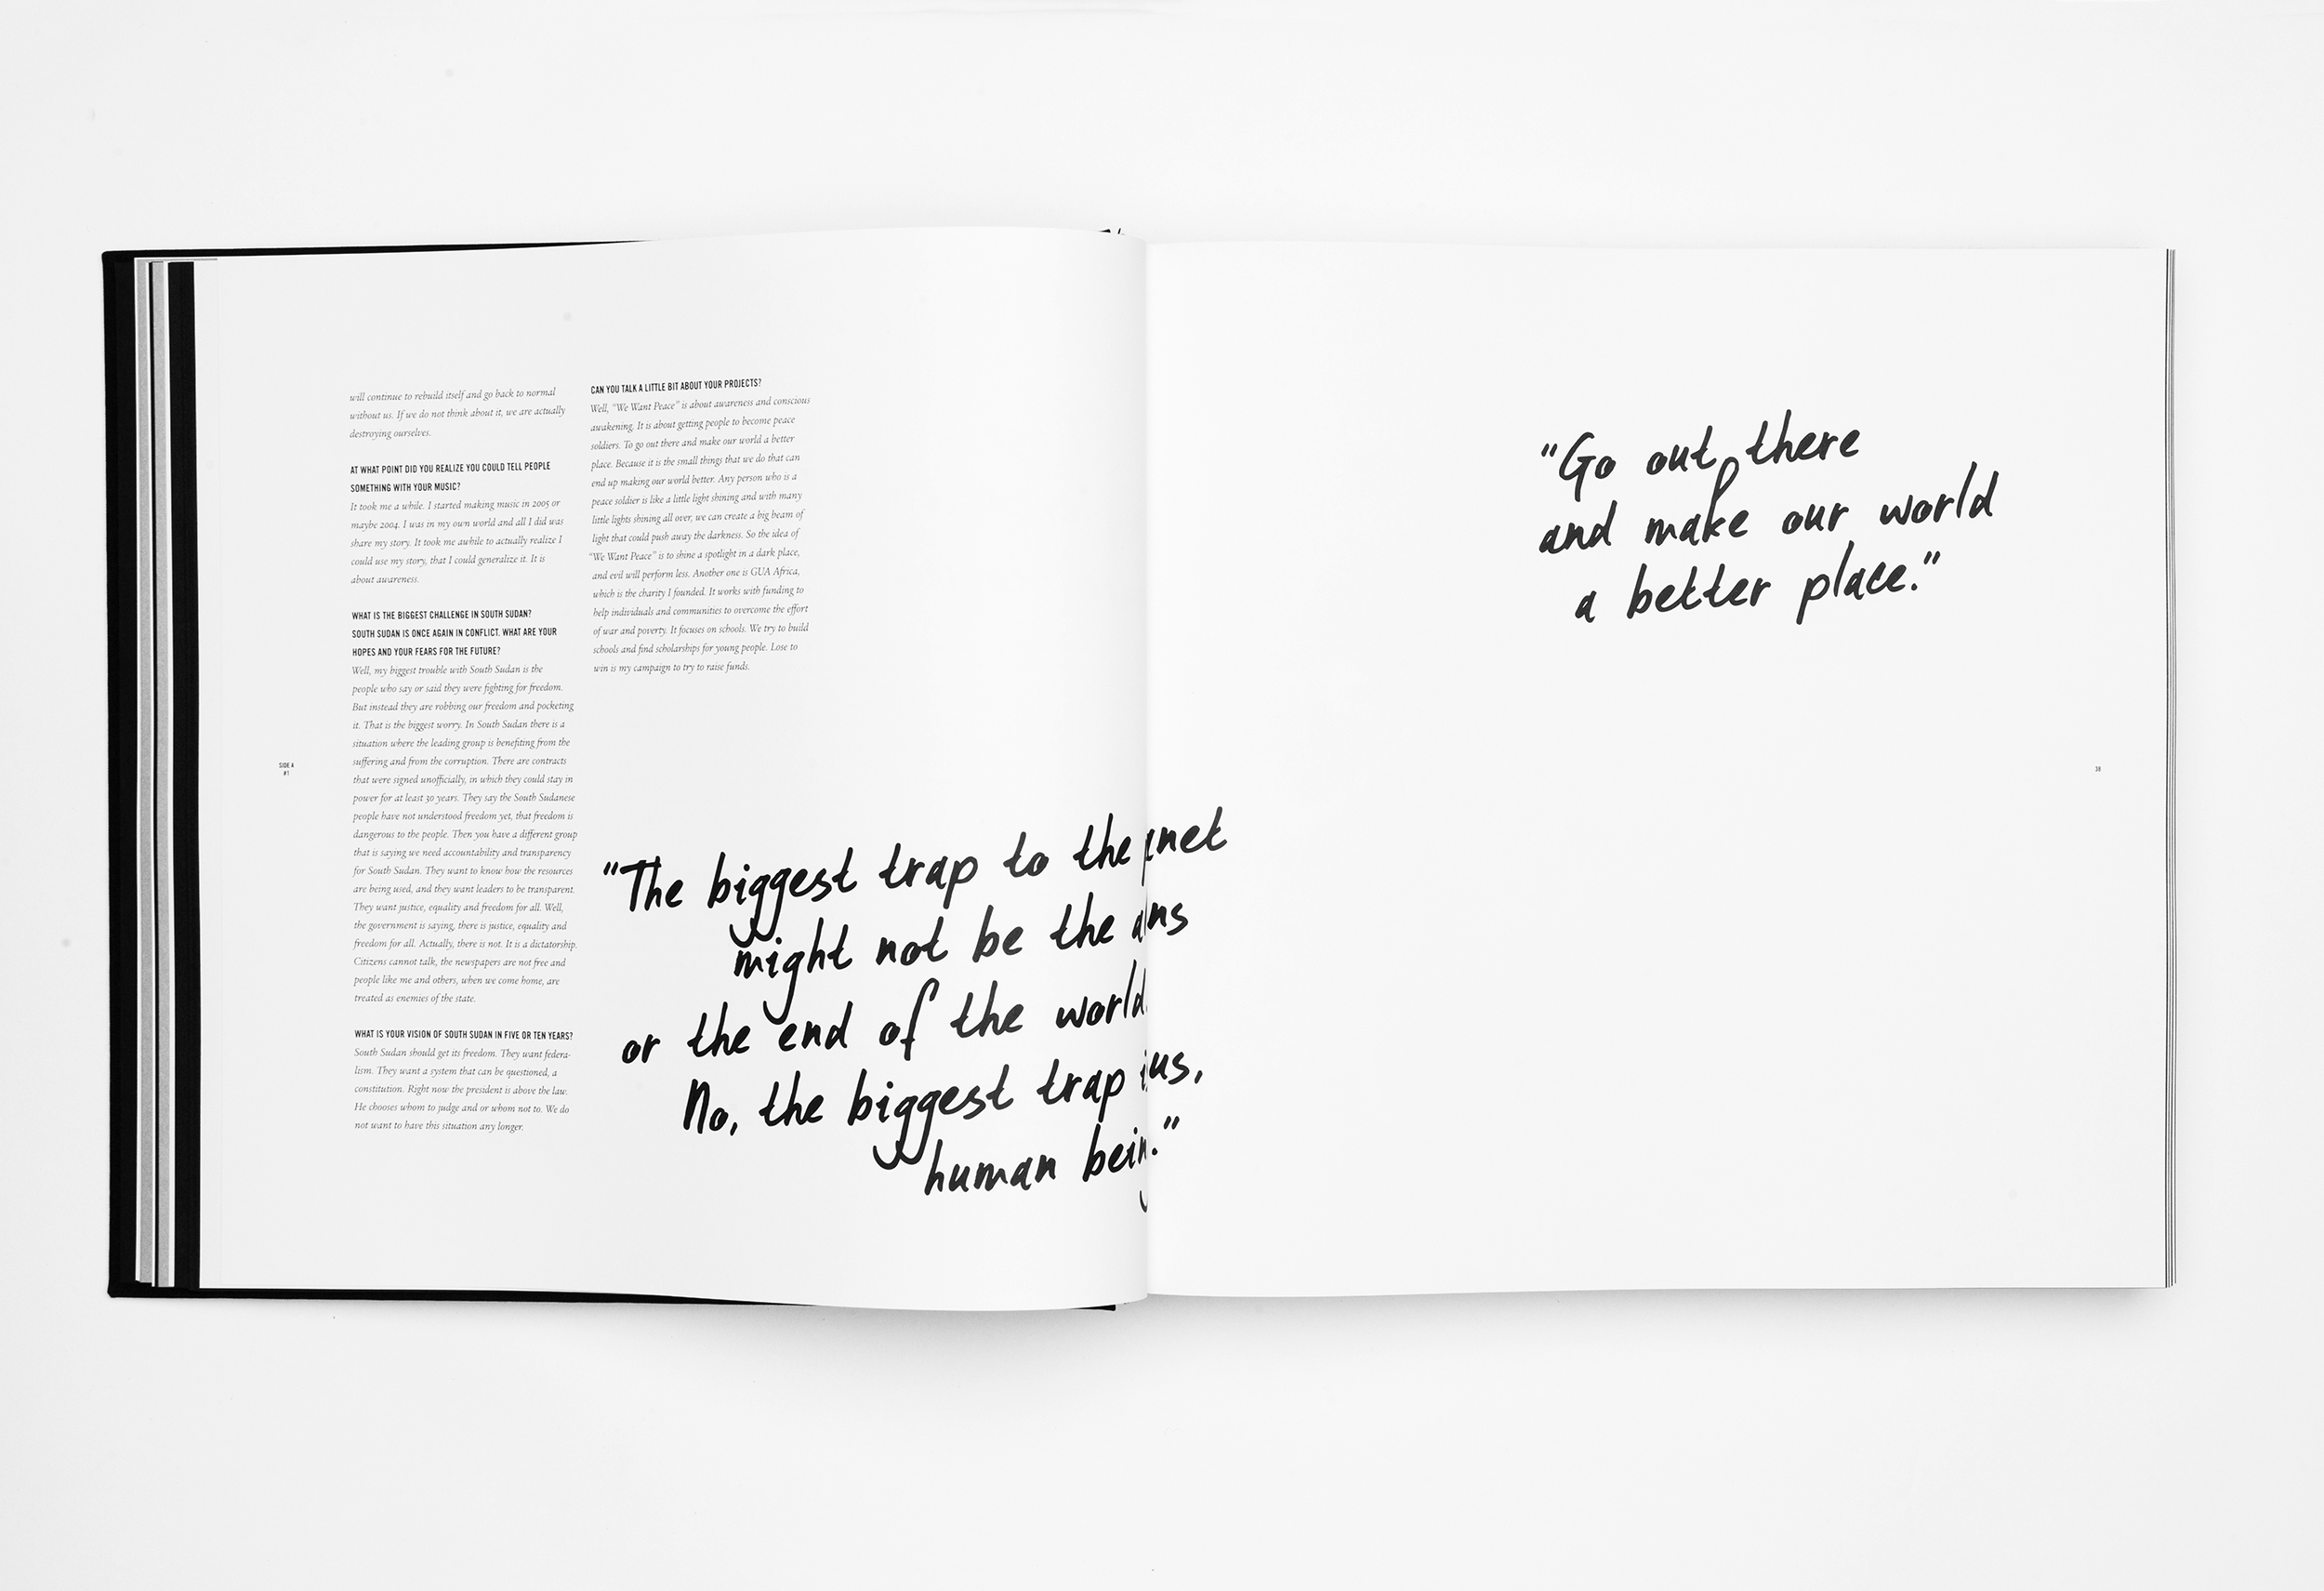 will continue to rebuild itself and go back to normal
without us. If we do not think about it, we are actually
destroying ourselves.
AT WHAT POINT DID YOU REALIZE YOU COULD TELL PEOPLE
SOMETHING WITH YOUR MUSIC?
It took me a while. I started making music in 2005 or
maybe 2004. I was in my own world and all I did was
share my story. It took me awhile to actually realize I
could use my story, that I could generalize it. It is
about awareness.
WHAT IS THE BIGGEST CHALLENGE IN SOUTH SUDAN?
SOUTH SUDAN IS ONCE AGAIN IN CONFLICT. WHAT ARE YOUR
HOPES AND YOUR FEARS FOR THE FUTURE?
Well, my biggest trouble with South Sudan is the
people who say or said they were fighting for freedom.
But instead they are robbing our freedom and pocketing
it. That is the biggest worry. In South Sudan there is a
situation where the leading group is benefiting from the
suffering and from the corruption. There are contracts
that were signed unofficially, in which they could stay in
power for at least 30 years. They say the South Sudanese
people have not understood freedom yet, that freedom is
dangerous to the people. Then you have a different group
that is saying we need accountability and transparency
for South Sudan. They want to know how the resources
are being used, and they want leaders to be transparent.
They want justice, equality and freedom for all. Well,
the government is saying, there is justice, equality and
freedom for all. Actually, there is not. It is a dictatorship.
Citizens cannot talk, the newspapers are not free and
people like me and others, when we come home, are
treated as enemies of the state.
WHAT IS YOUR VISION OF SOUTH SUDAN IN FIVE OR TEN YEARS?
South Sudan should get its freedom. They want federa-
lism. They want a system that can be questioned, a
constitution. Right now the president is above the law.
He chooses whom to judge and or whom not to. We do
not want to have this situation any longer.
CAN YOU TALK A LITTLE BIT ABOUT YOUR PROJECTS?
Well, "We Want Peace" is about awareness and conscious
awakening. It is about getting people to become peace
soldiers. To go out there and make our world a better
place. Because it is the small things that we do that can
end up making our world better. Any person who is a
peace soldier is like a little light shining and with many
little lights shining all over, we can create a big beam of
light that could push away the darkness. So the idea of
"We Want Peace" is to shine a spotlight in a dark place,
and evil will perform less. Another one is GUA Africa,
which is the charity I founded. It works with funding to
help individuals and communities to overcome the effort
of war and poverty. It focuses on schools. We try to build
schools and find scholarships for young people. Lose to
win is my campaign to try to raise funds.
SIDE A
#1
"The biggest trap to the
might not be the
or the end of the world.
No, the biggest trap us,
human
"Go out there
and make our world
a better place."
38